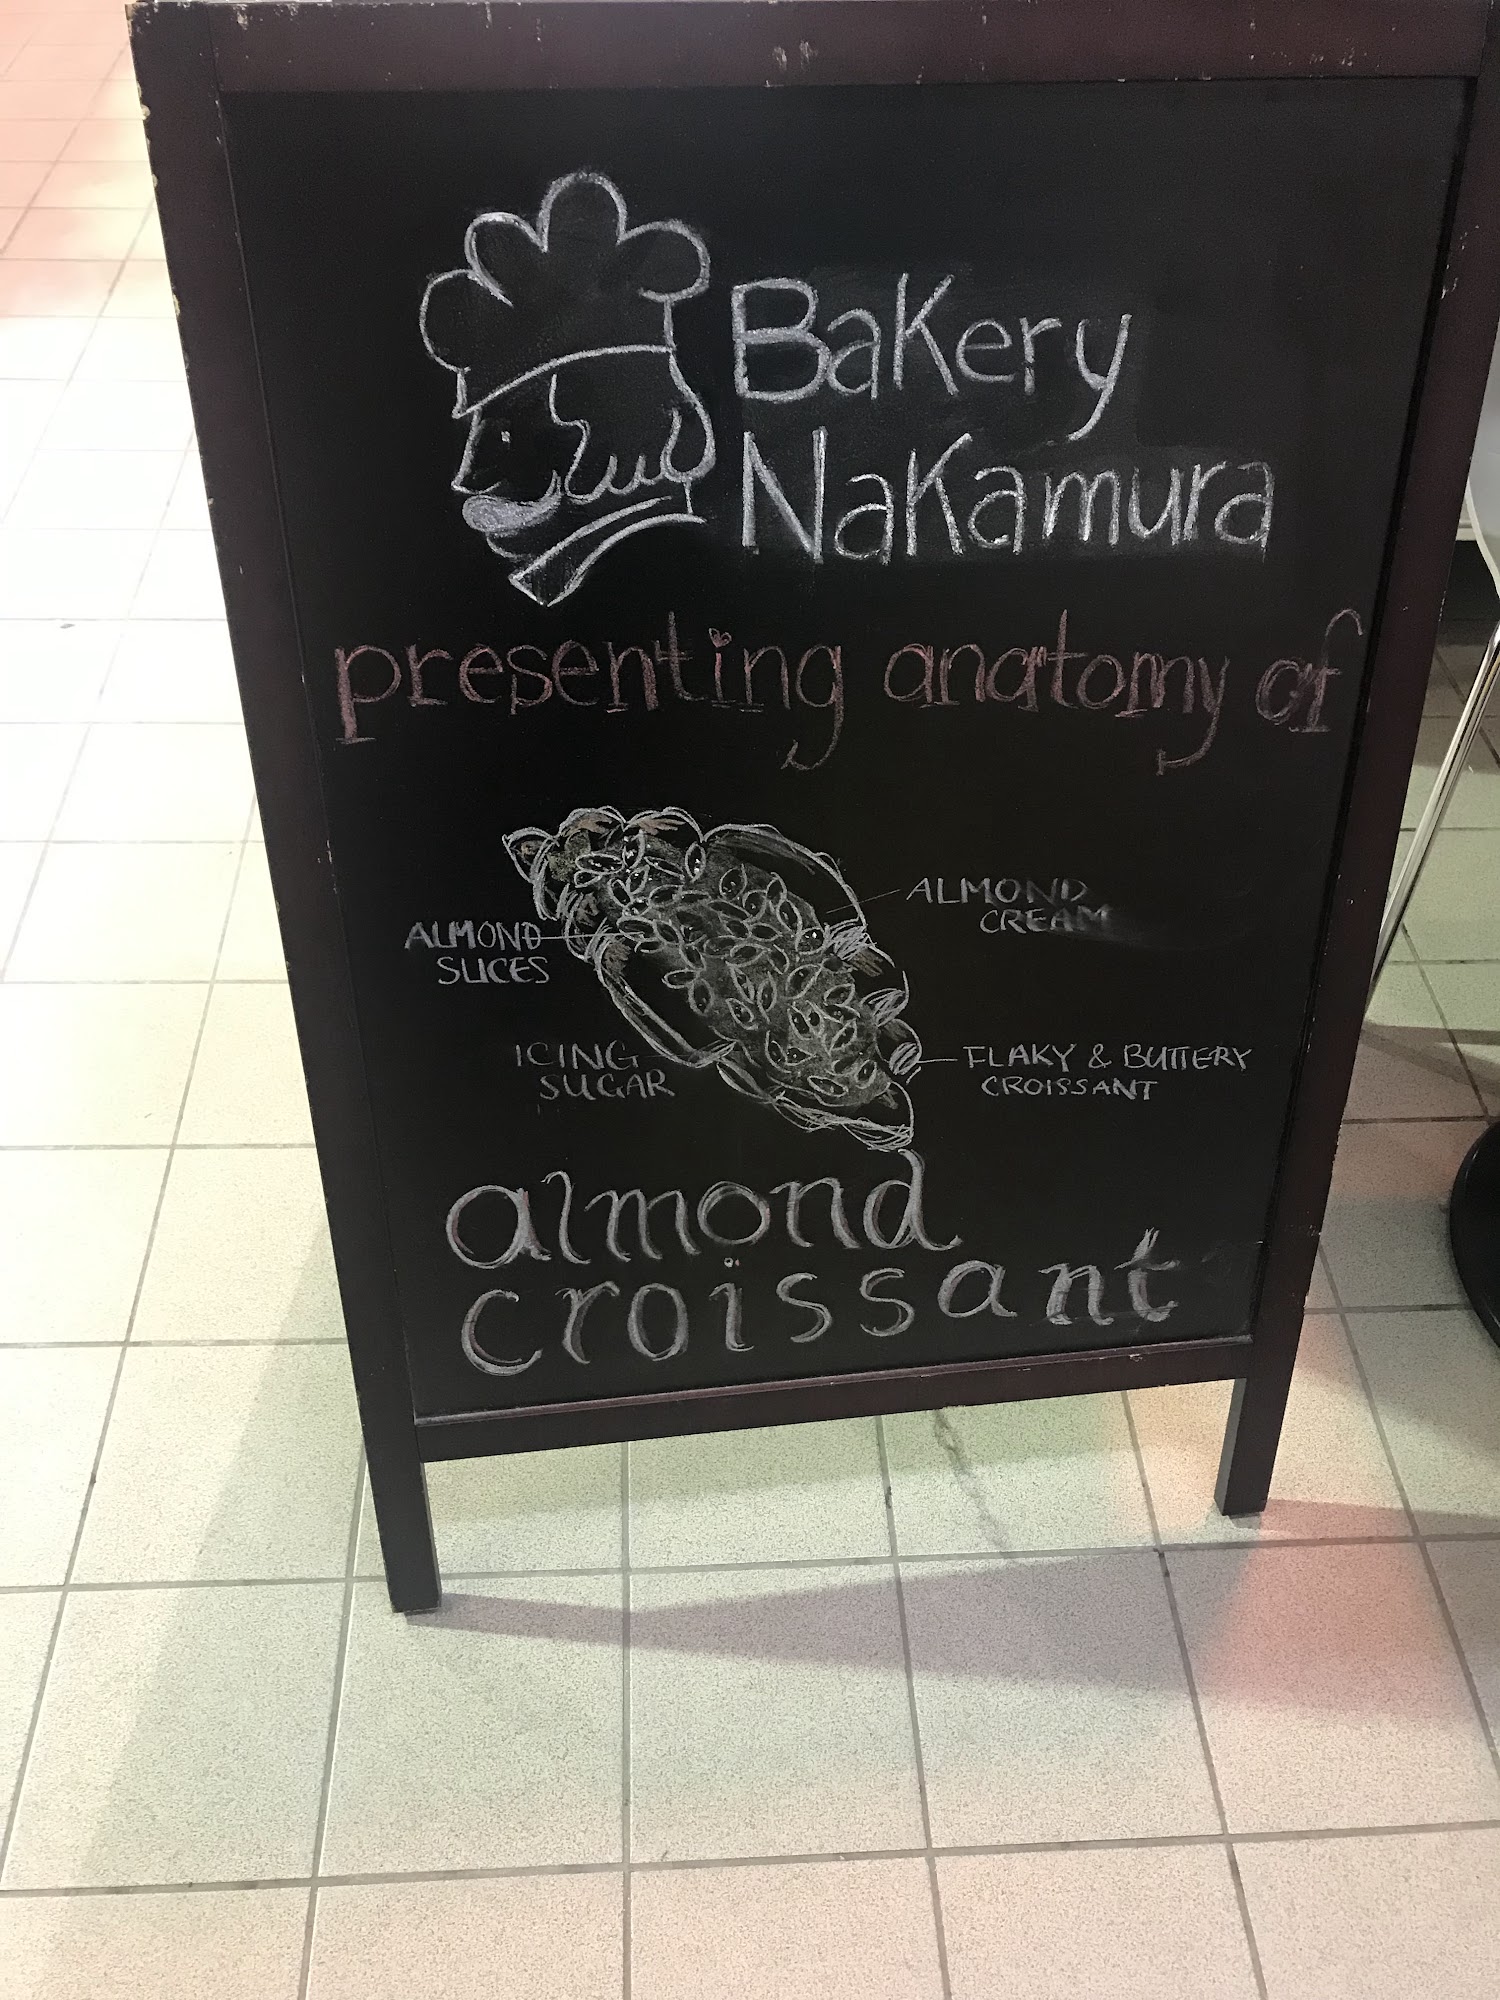 Bakery
Nakamura
presenting anatomy of
ALMOND
CREAM
ALMOND
SLICES
ICING
SUGAR
FLAKY & BUTTERY
CROISSANT
almond
croissant